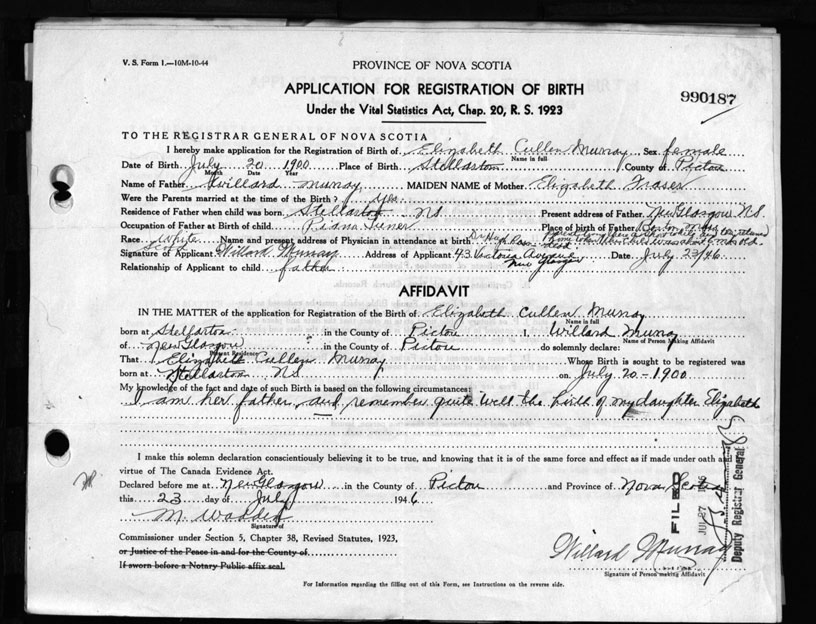 V. S. Form 1.—10M-10-44
PROVINCE OF NOVA SCOTIA
APPLICATION FOR REGISTRATION OF BIRTH
990187
Under the Vital Statistics Act, Chap. 20, R. S. 1923
TO THE REGISTRAR GENERAL OF NOVA SCOTIA
I hereby make application for the Registration of Birth of Elizabeth Cullen Murray Sex female
Name in full
Date of Birth July 20 1900 Place of Birth Stellarton County of Pictou
Month Date Year
Name of Father Willard Murray MAIDEN NAME of Mother Elizabeth Fraser
Were the Parents married at the time of the Birth? Yes
Residence of Father when child was born Stellarton NS Present address of Father New Glasgow NS
Occupation of Father at Birth of child Piano Tuner Place of birth of Father
Race White Name and present address of Physician in attendance at birth
Scotch
Signature of Applicant Willard Murray Address of Applicant 43 Victoria Avenue Date July 23/46
New Glasgow
Relationship of Applicant to child father
AFFIDAVIT
IN THE MATTER of the application for Registration of the Birth of Elizabeth Cullen Murray
Name in full
born at Stellarton in the County of Pictou I, Willard Murray
Name of Person Making Affidavit
of New Glasgow in the County of Pictou do solemnly declare:
Present Residence
That Elizabeth Cullen Murray Whose Birth is sought to be registered was
born at Stellarton NS on July 20-1900
My knowledge of the fact and date of such Birth is based on the following circumstances:
I am her father and remember quite well the birth of my daughter Elizabeth
I make this solemn declaration conscientiously believing it to be true, and knowing that it is of the same force and effect as if made under oath and by
virtue of The Canada Evidence Act.
Declared before me at New Glasgow in the County of Pictou and Province of Nova Scotia
this 23 day of July 1946
M. Wadden
Signature of
Commissioner under Section 5, Chapter 38, Revised Statutes, 1923,
or Justice of the Peace in and for the County of
If sworn before a Notary Public affix seal.
Willard Murray
Signature of Person making Affidavit
FILED
JUL 27 1946
Deputy Registrar General
For Information regarding the filling out of this Form, see Instructions on the reverse side.